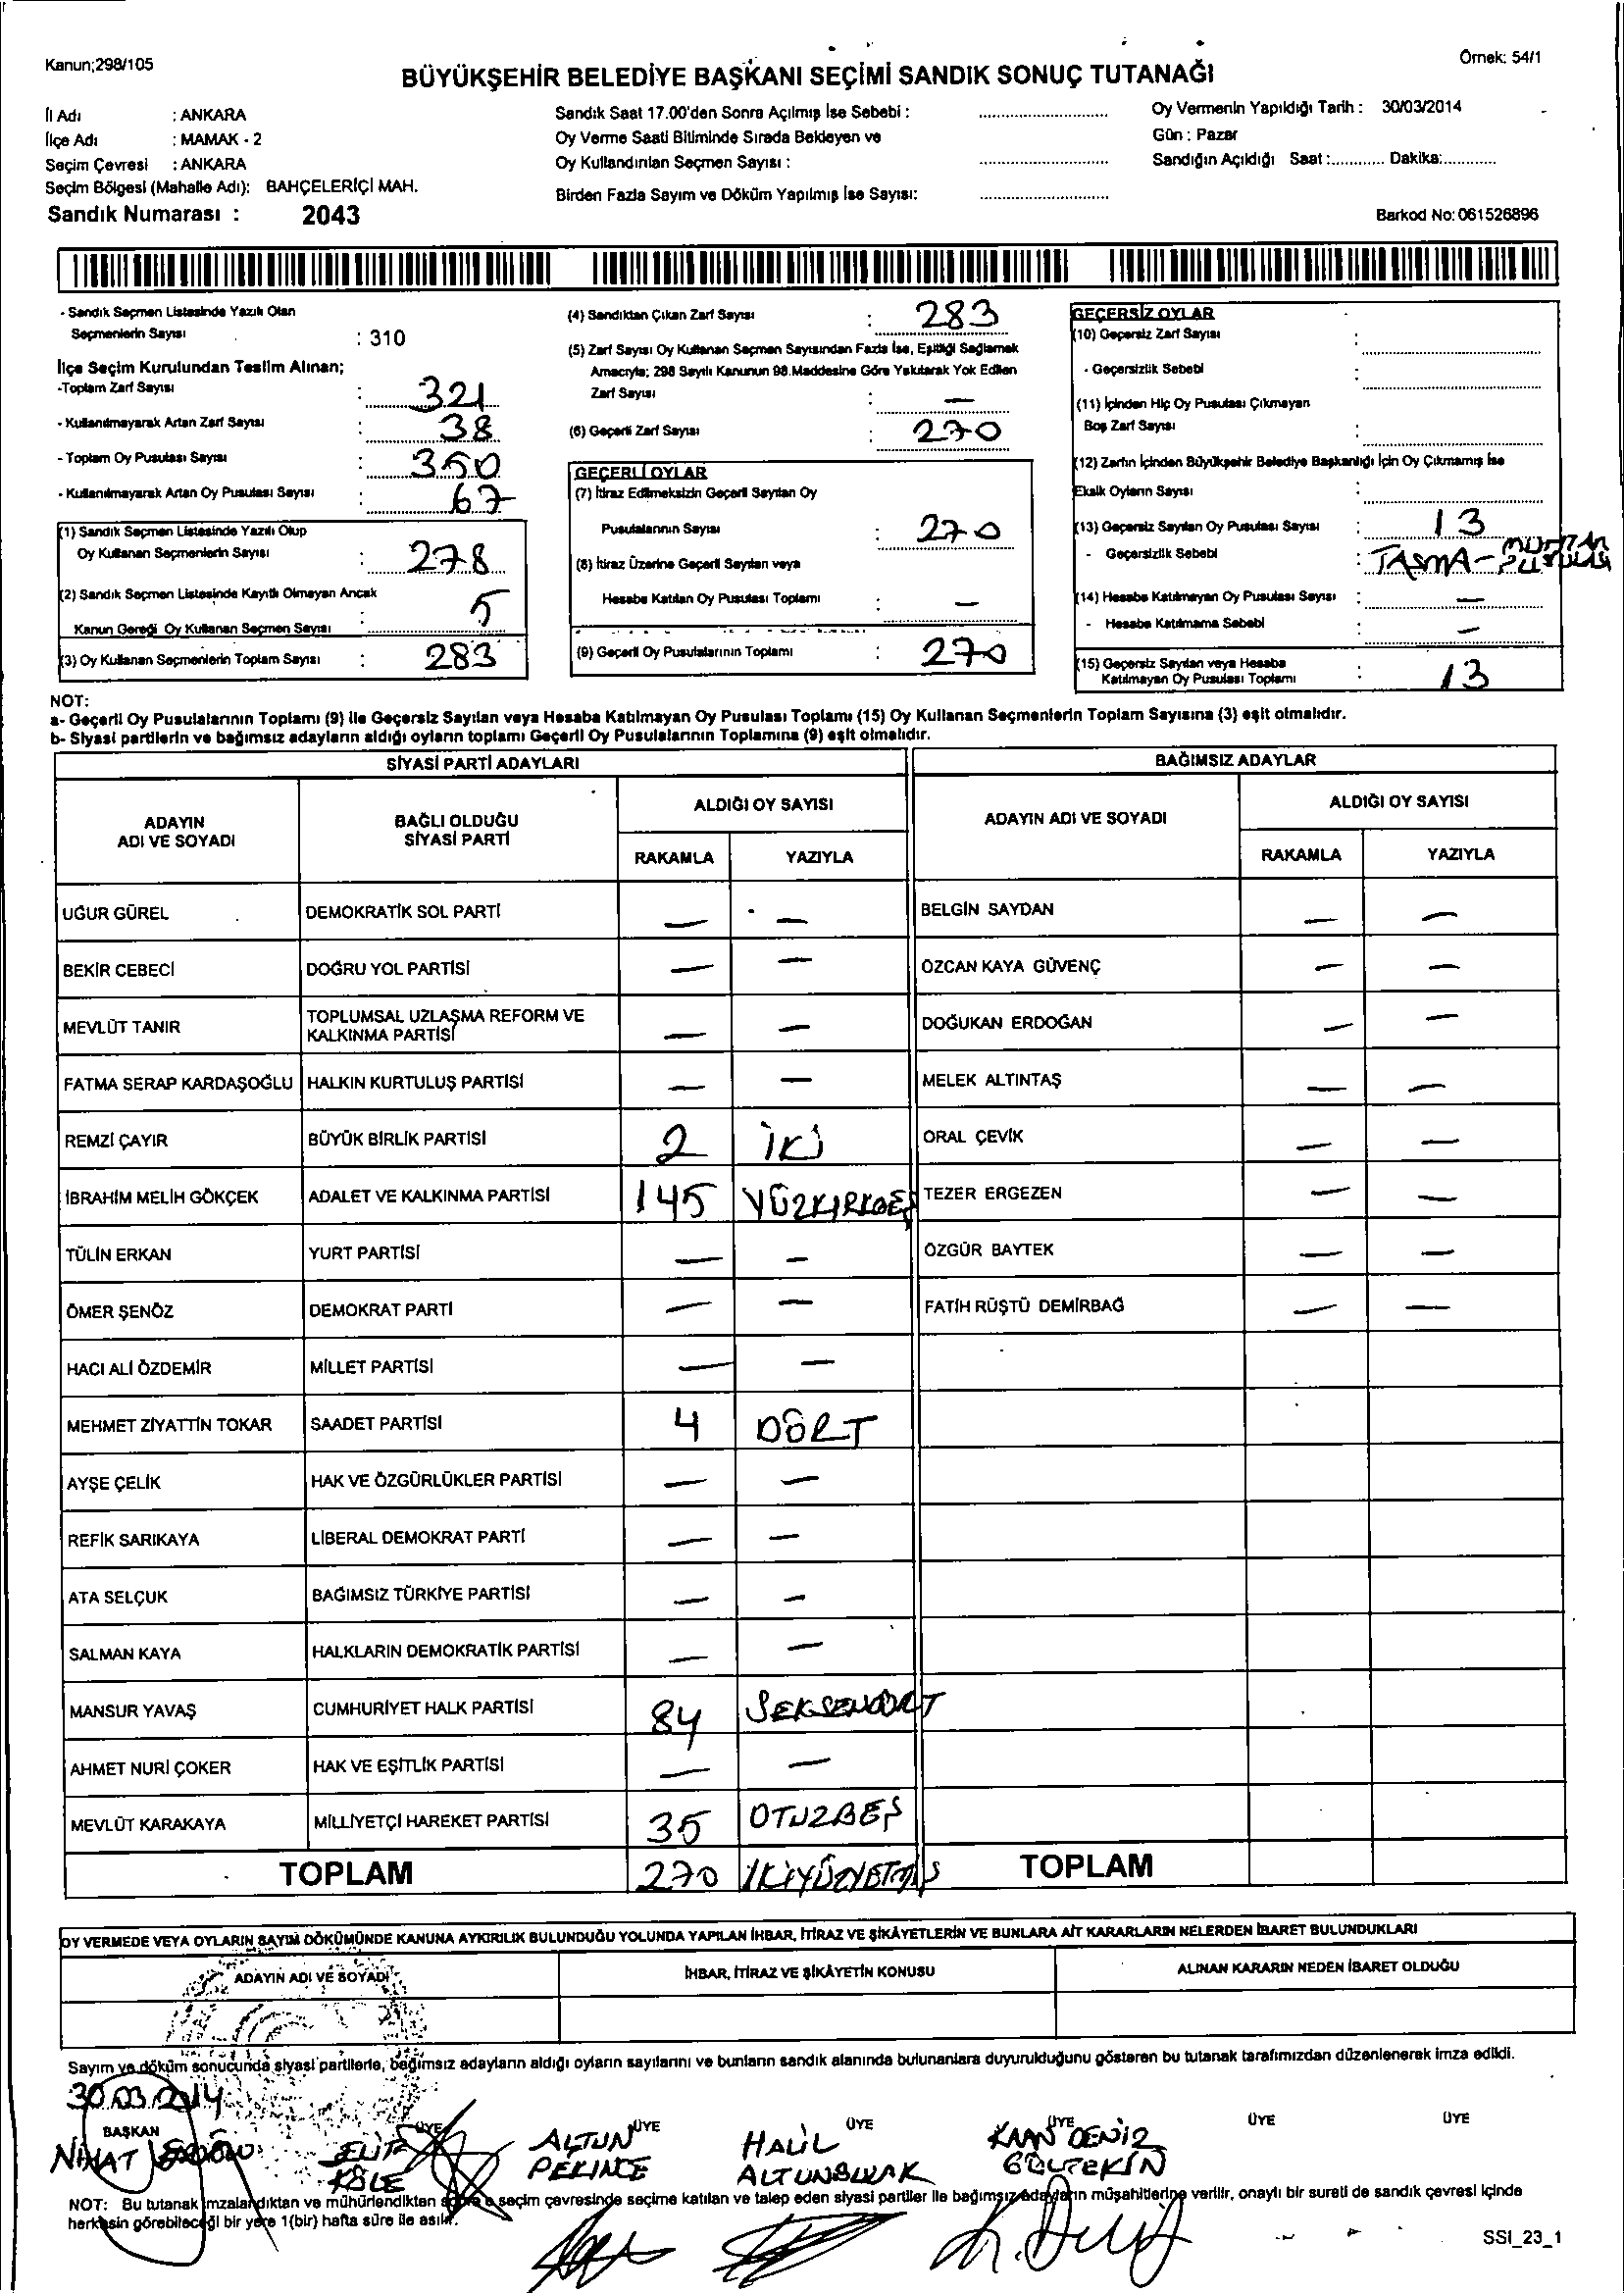 Kanun;298/105
Örnek: 54/1
BÜYÜKŞEHİR BELEDİYE BAŞKANI SEÇİMİ SANDIK SONUÇ TUTANAĞI
İl Adı : ANKARA
İlçe Adı : MAMAK - 2
Seçim Çevresi : ANKARA
Seçim Bölgesi (Mahalle Adı): BAHÇELERİÇİ MAH.
Sandık Numarası : 2043
Sandık Saat 17.00'den Sonra Açılmış İse Sebebi :
Oy Verme Saati Bitiminde Sırada Bekleyen ve
Oy Kullandırılan Seçmen Sayısı :
Birden Fazla Sayım ve Döküm Yapılmış İse Sayısı:
Oy Vermenin Yapıldığı Tarih : 30/03/2014
Gün : Pazar
Sandığın Açıldığı Saat :............ Dakika:............
Barkod No: 061526896
- Sandık Seçmen Listesinde Yazılı Olan
Seçmenlerin Sayısı : 310
İlçe Seçim Kurulundan Teslim Alınan;
-Toplam Zarf Sayısı : 321
- Kullanılmayarak Artan Zarf Sayısı : 38
- Toplam Oy Pusulası Sayısı : 350
- Kullanılmayarak Artan Oy Pusulası Sayısı : 67
(1) Sandık Seçmen Listesinde Yazılı Olup
Oy Kullanan Seçmenlerin Sayısı : 278
(2) Sandık Seçmen Listesinde Kayıtlı Olmayan Ancak
Kanun Gereği Oy Kullanan Seçmen Sayısı : 5
(3) Oy Kullanan Seçmenlerin Toplam Sayısı : 283
(4) Sandıktan Çıkan Zarf Sayısı : 283
(5) Zarf Sayısı Oy Kullanan Seçmen Sayısından Fazla İse, Eşitliği Sağlamak
Amacıyla; 298 Sayılı Kanunun 98.Maddesine Göre Yakılarak Yok Edilen
Zarf Sayısı : —
(6) Geçerli Zarf Sayısı : 270
GEÇERLİ OYLAR
(7) İtiraz Edilmeksizin Geçerli Sayılan Oy
Pusulalarının Sayısı : 270
(8) İtiraz Üzerine Geçerli Sayılan veya
Hesaba Katılan Oy Pusulası Toplamı : —
(9) Geçerli Oy Pusulalarının Toplamı : 270
GEÇERSİZ OYLAR
(10) Geçersiz Zarf Sayısı :
- Geçersizlik Sebebi :
(11) İçinden Hiç Oy Pusulası Çıkmayan
Boş Zarf Sayısı :
(12) Zarfın İçinden Büyükşehir Belediye Başkanlığı İçin Oy Çıkmamış İse
Eksik Oyların Sayısı :
(13) Geçersiz Sayılan Oy Pusulası Sayısı : 13
- Geçersizlik Sebebi : TAŞMA-
(14) Hesaba Katılmayan Oy Pusulası Sayısı : —
- Hesaba Katılmama Sebebi : —
(15) Geçersiz Sayılan veya Hesaba
Katılmayan Oy Pusulası Toplamı : 13
NOT:
a- Geçerli Oy Pusulalarının Toplamı (9) ile Geçersiz Sayılan veya Hesaba Katılmayan Oy Pusulası Toplamı (15) Oy Kullanan Seçmenlerin Toplam Sayısına (3) eşit olmalıdır.
b- Siyasi partilerin ve bağımsız adayların aldığı oyların toplamı Geçerli Oy Pusulalarının Toplamına (9) eşit olmalıdır.
SİYASİ PARTİ ADAYLARI
ADAYIN ADI VE SOYADI
BAĞLI OLDUĞU SİYASİ PARTİ
ALDIĞI OY SAYISI
RAKAMLA YAZIYLA
UĞUR GÜREL DEMOKRATİK SOL PARTİ — —
BEKİR CEBECİ DOĞRU YOL PARTİSİ — —
MEVLÜT TANIR TOPLUMSAL UZLAŞMA REFORM VE KALKINMA PARTİSİ — —
FATMA SERAP KARDAŞOĞLU HALKIN KURTULUŞ PARTİSİ — —
REMZİ ÇAYIR BÜYÜK BİRLİK PARTİSİ 2 İKİ
İBRAHİM MELİH GÖKÇEK ADALET VE KALKINMA PARTİSİ 145 YÜZKIRKBEŞ
TÜLİN ERKAN YURT PARTİSİ — —
ÖMER ŞENÖZ DEMOKRAT PARTİ — —
HACI ALİ ÖZDEMİR MİLLET PARTİSİ — —
MEHMET ZİYATTİN TOKAR SAADET PARTİSİ 4 DÖRT
AYŞE ÇELİK HAK VE ÖZGÜRLÜKLER PARTİSİ — —
REFİK SARIKAYA LİBERAL DEMOKRAT PARTİ — —
ATA SELÇUK BAĞIMSIZ TÜRKİYE PARTİSİ — —
SALMAN KAYA HALKLARIN DEMOKRATİK PARTİSİ — —
MANSUR YAVAŞ CUMHURİYET HALK PARTİSİ 84 SEKSENDÖRT
AHMET NURİ ÇOKER HAK VE EŞİTLİK PARTİSİ — —
MEVLÜT KARAKAYA MİLLİYETÇİ HAREKET PARTİSİ 35 OTUZBEŞ
TOPLAM 270 İKİYÜZYETMİŞ
BAĞIMSIZ ADAYLAR
ADAYIN ADI VE SOYADI
ALDIĞI OY SAYISI
RAKAMLA YAZIYLA
BELGİN SAYDAN — —
ÖZCAN KAYA GÜVENÇ — —
DOĞUKAN ERDOĞAN — —
MELEK ALTINTAŞ — —
ORAL ÇEVİK — —
TEZER ERGEZEN — —
ÖZGÜR BAYTEK — —
FATİH RÜŞTÜ DEMİRBAĞ — —
TOPLAM
OY VERMEDE VEYA OYLARIN SAYIM DÖKÜMÜNDE KANUNA AYKIRILIK BULUNDUĞU YOLUNDA YAPILAN İHBAR, İTİRAZ VE ŞİKÂYETLERİN VE BUNLARA AİT KARARLARIN NELERDEN İBARET BULUNDUKLARI
ADAYIN ADI VE SOYADI
İHBAR, İTİRAZ VE ŞİKÂYETİN KONUSU
ALINAN KARARIN NEDEN İBARET OLDUĞU
Sayım ve döküm sonucunda siyasi partilerle, bağımsız adayların aldığı oyların sayılarını ve bunların sandık alanında bulunanlara duyurulduğunu gösteren bu tutanak tarafımızdan düzenlenerek imza edildi.
30.03.2014
BAŞKAN ÜYE ÜYE ÜYE ÜYE ÜYE ÜYE
NİHAT ELİF ALTUN HALİL KAAN DENİZ
KÖLE PEKİNCE ALTUNBULAK GÜLTEKİN
NOT: Bu tutanak imzalandıktan ve mühürlendikten sonra o seçim çevresinde seçime katılan ve talep eden siyasi partiler ile bağımsız adayların müşahitlerine verilir, onaylı bir sureti de sandık çevresi içinde
herkesin görebileceği bir yere 1(bir) hafta süre ile asılır.
SSI_23_1